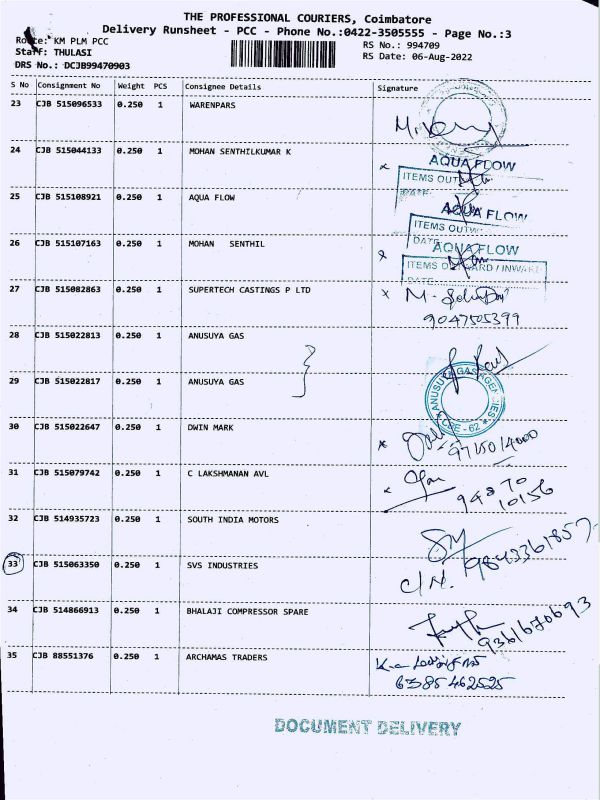 THE PROFESSIONAL COURIERS, Coimbatore
Delivery Runsheet - PCC - Phone No.:0422-3505555 - Page No.:3
Route: KM PLM PCC
RS No.: 994709
Staff: THULASI
RS Date: 06-Aug-2022
DRS No.: DCJB99470903
S No Consignment No Weight PCS Consignee Details Signature
23 CJB 515096533 0.250 1 WARENPARS
24 CJB 515044133 0.250 1 MOHAN SENTHILKUMAR K
AQUA FLOW
ITEMS OUT
DATE
25 CJB 515108921 0.250 1 AQUA FLOW
AQUA FLOW
ITEMS OUTW
DATE
26 CJB 515107163 0.250 1 MOHAN SENTHIL
AQUA FLOW
ITEMS OUTWARD / INWARD
DATE
27 CJB 515082863 0.250 1 SUPERTECH CASTINGS P LTD
9047505399
28 CJB 515022813 0.250 1 ANUSUYA GAS
29 CJB 515022817 0.250 1 ANUSUYA GAS
ANUSUYA GAS AGENCIES
CBE - 62
30 CJB 515022647 0.250 1 DWIN MARK
9715014000
31 CJB 515079742 0.250 1 C LAKSHMANAN AVL
94870
10156
32 CJB 514935723 0.250 1 SOUTH INDIA MOTORS
9843361857
33 CJB 515063350 0.250 1 SVS INDUSTRIES
C/N.
34 CJB 514866913 0.250 1 BHALAJI COMPRESSOR SPARE
9361670693
35 CJB 88551376 0.250 1 ARCHAMAS TRADERS
6385462525
DOCUMENT DELIVERY